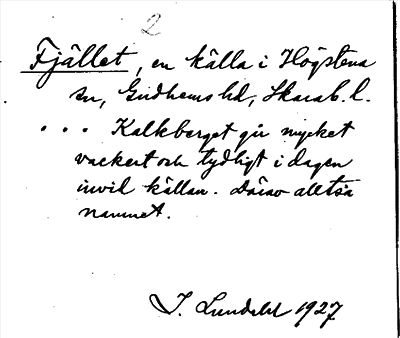 2
Fjället, en källa i Högstena
sn, Gudhems hd, Skarab. l.
... Kalkberget går mycket
vackert och tydligt i dagen
invid källan. Därav alltså
namnet.
J. Lundahl 1927